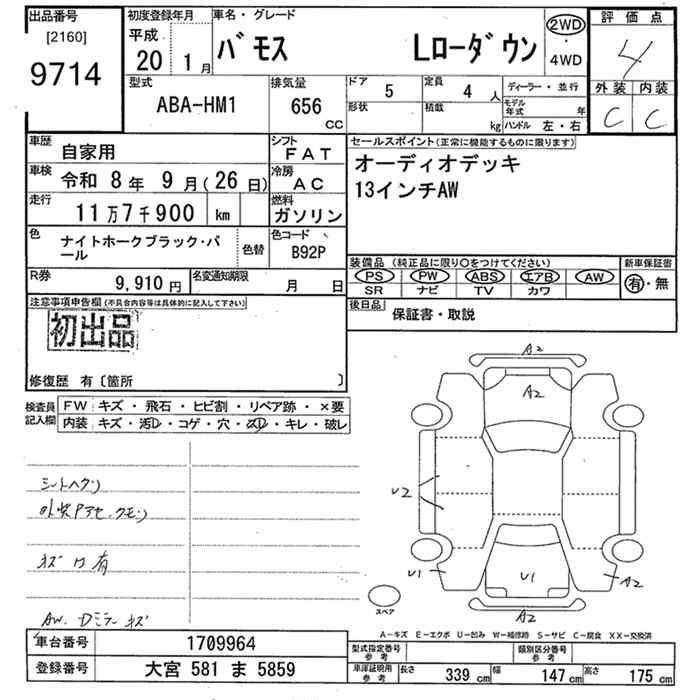 出品番号 初度登録年月 車名・グレード 評価点
[2160] 平成 2WD
9714 20 1月 バモス Lローダウン ・ 4
4WD
型式 排気量 ドア 5 定員 4人 ディーラー・並行 外装 内装
ABA-HM1 656 cc 形状 積載 kg モデル年式 年 C C
ハンドル 左・右
車歴 自家用 シフト FAT セールスポイント(正常に機能するものに限ります)
車検 令和 8年 9月(26日) 冷房 AC オーディオデッキ
走行 11万7千900 km 燃料 ガソリン 13インチAW
色 ナイトホークブラック・パール 色替 色コード B92P
装備品(純正品に限り○をつけてください) 新車保証書
PS PW ABS エアB AW 有・無
R券 9,910円 名変通知期限 月 日 SR ナビ TV カワ
注意事項申告欄(不具合内容等は具体的に記入して下さい) 後日品 保証書・取説
初出品
修復歴 有〔箇所 〕
検査員記入欄 FW キズ・飛石・ヒビ割・リペア跡・×要
内装 キズ・汚レ・コゲ・穴・スレ・キレ・破レ
A2
A2
シートヘタリ
U2
キズ凹有
U1 U1 A2
スペア
AW. キズ A2
A-キズ E-エクボ U-凹み W-補修跡 S-サビ C-腐食 XX-交換済
車台番号 1709964 型式指定番号 参考 類別区分番号 参考
登録番号 大宮 581 ま 5859 車庫証明用 参考 長さ 339cm 幅 147cm 高さ 175cm